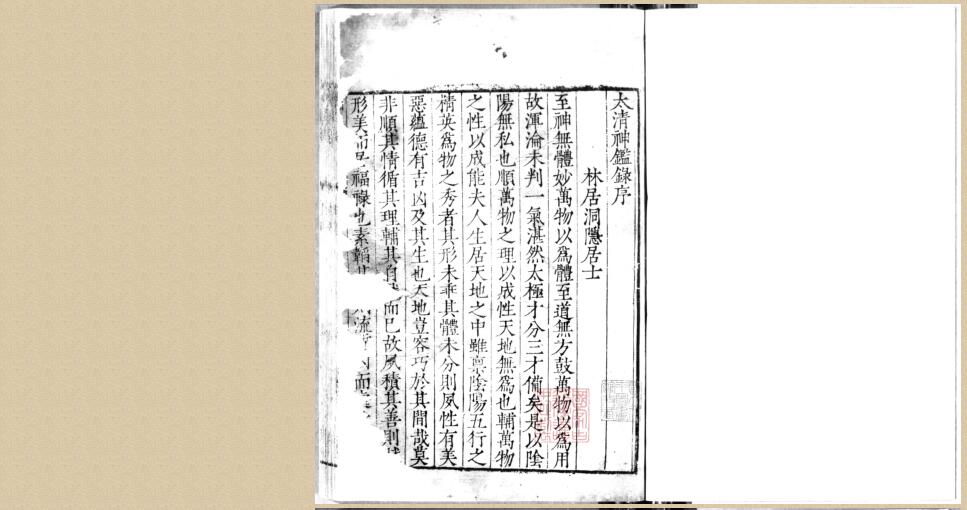 太清神鑑錄序
林居洞隱居士
至神無體妙萬物以爲體至道無方鼓萬物以爲用
故渾淪未判一氣湛然太極才分三才備矣是以陰
陽無私也順萬物之理以成性天地無爲也輔萬物
之性以成能夫人生居天地之中雖禀陰陽五行之
精英爲物之秀者其形未乖其體未分則夙性有美
惡蘊德有吉凶及其生也天地豈容巧於其間哉莫
非順其情循其理輔其自而已故夙積其善則
形美而福祿也素韜流而